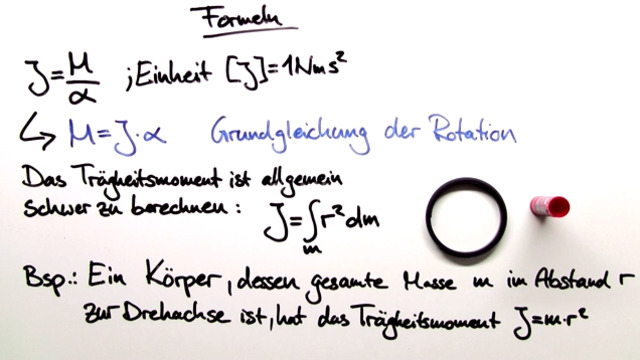 Formeln
J = M/α ; Einheit [J] = 1Nms²
↳ M = J·α Grundgleichung der Rotation
Das Trägheitsmoment ist allgemein
schwer zu berechnen: J = ∫_m r² dm
Bsp.: Ein Körper, dessen gesamte Masse m im Abstand r
zur Drehachse ist, hat das Trägheitsmoment J = m·r²